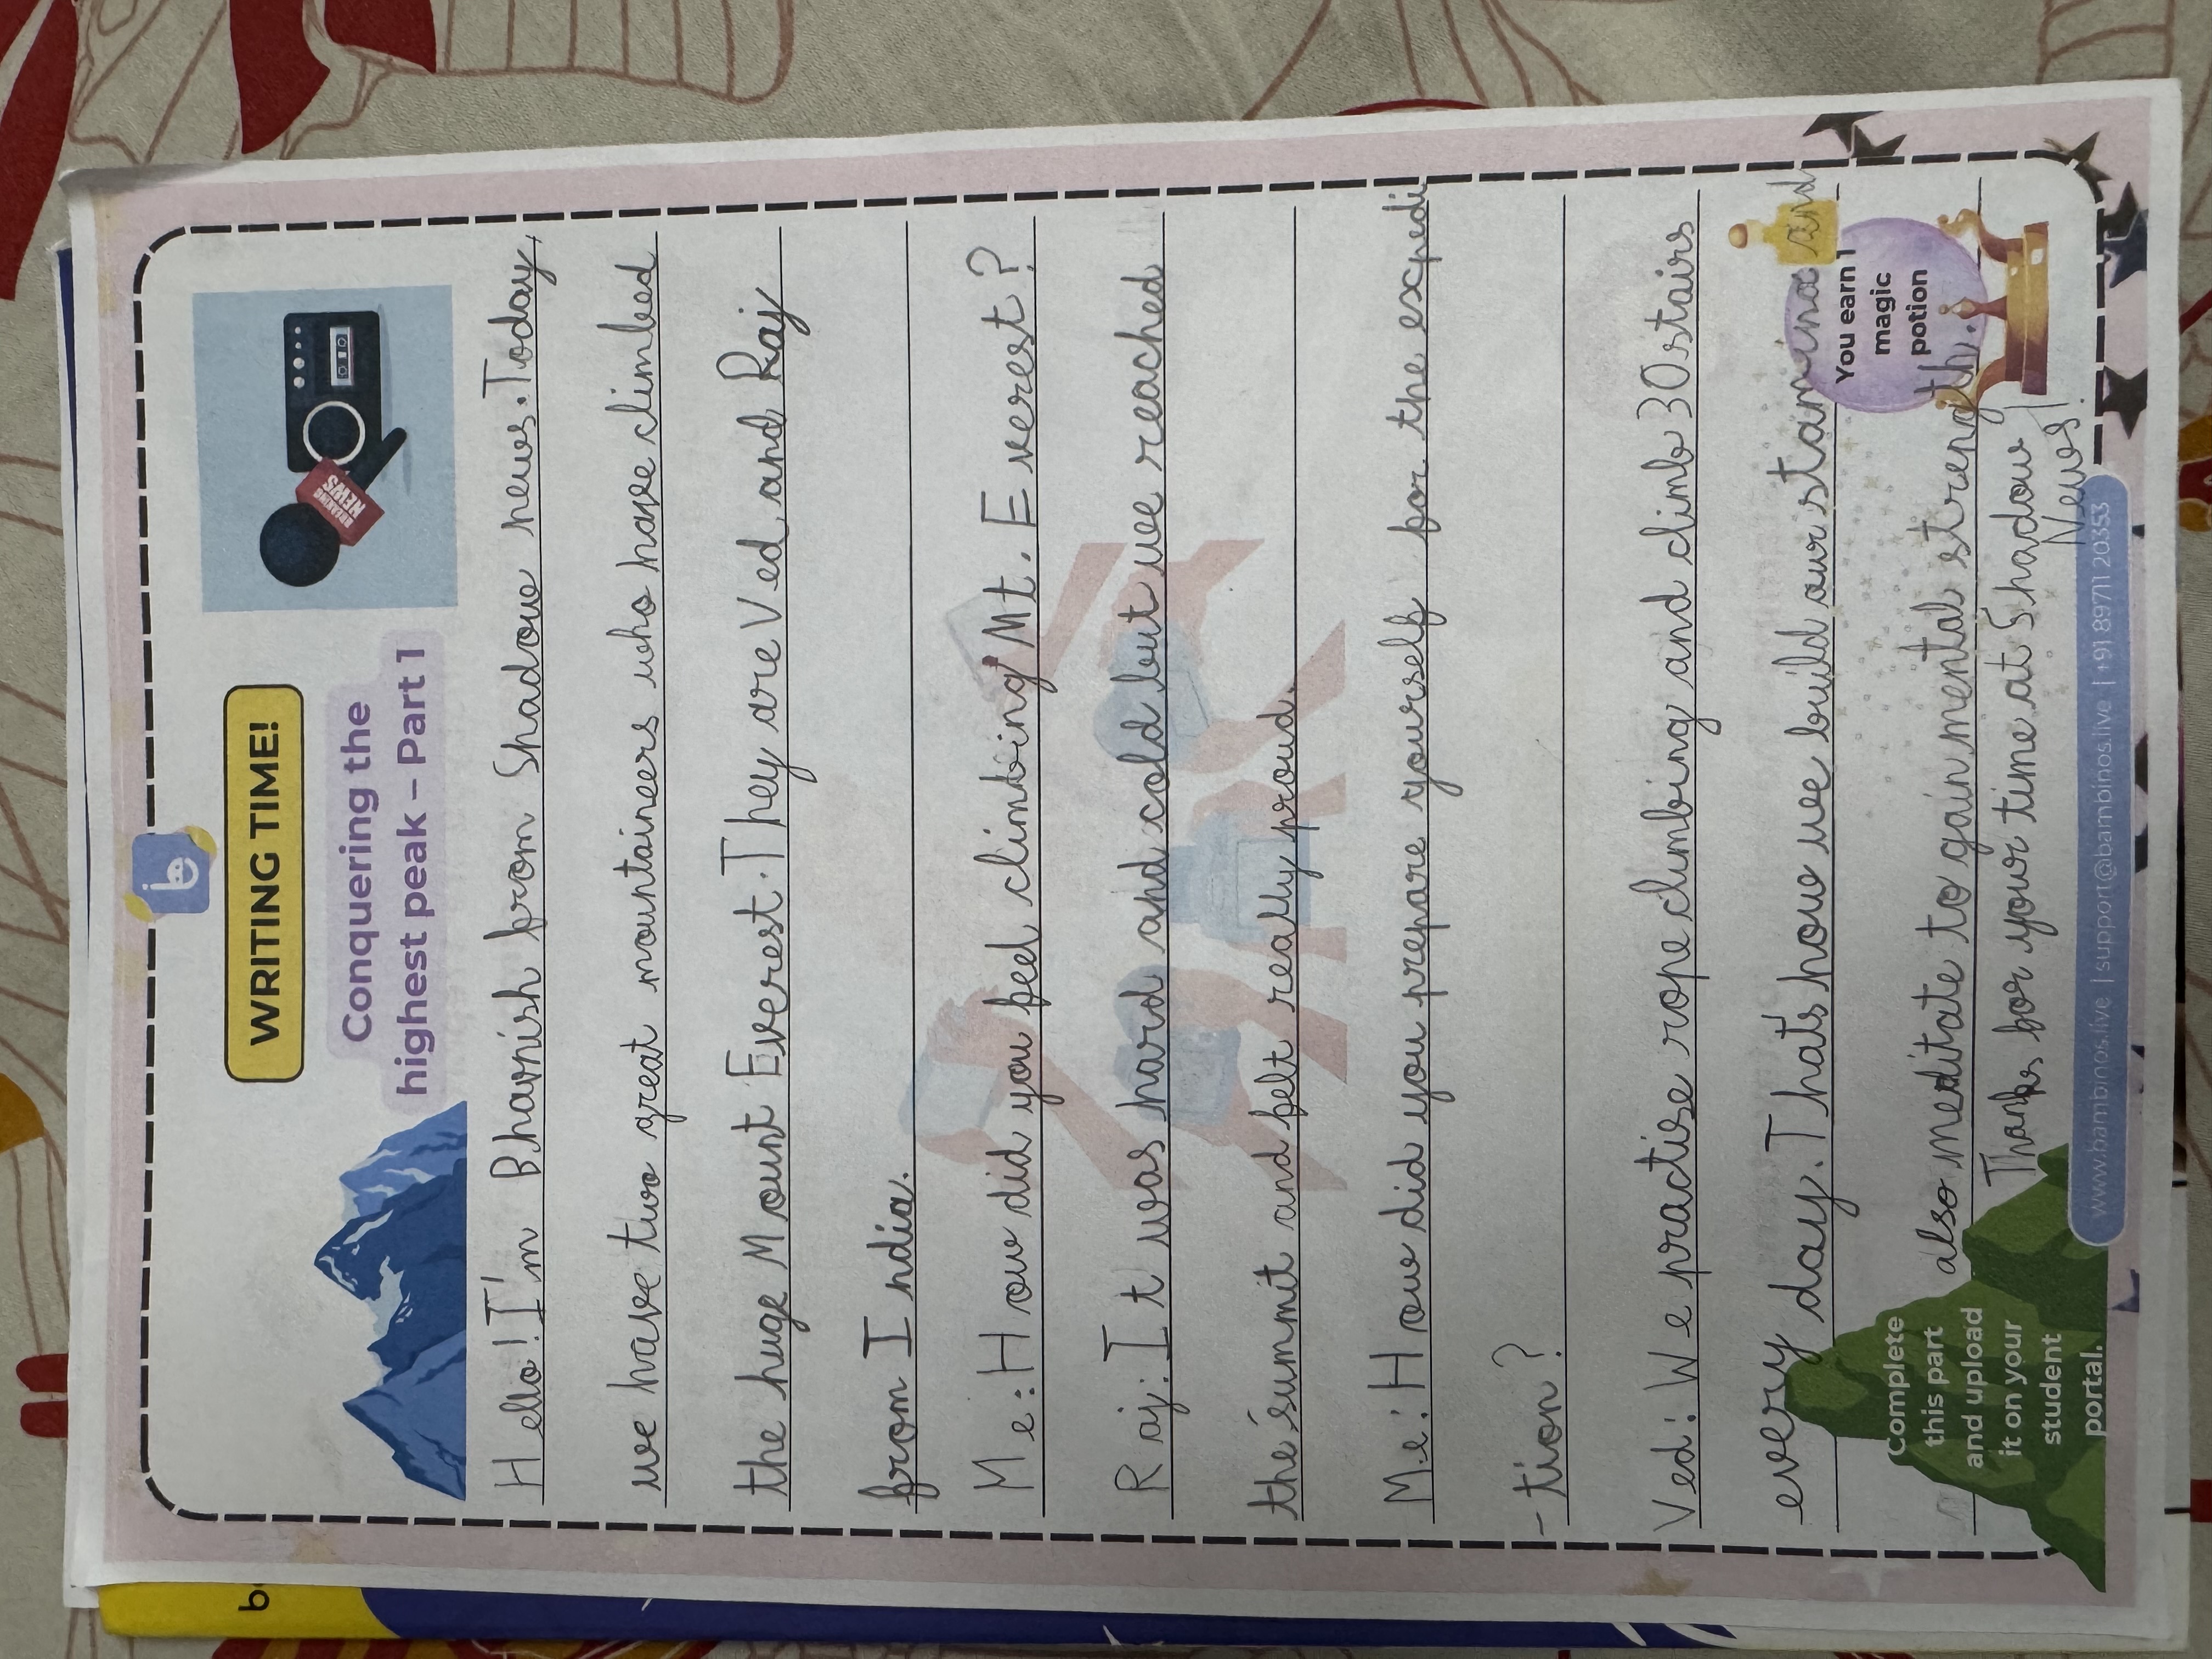 WRITING TIME!
Conquering the
highest peak – Part 1
BREAKING
NEWS
Hello! I'm Bhavnish from Shadow news. Today,
we have two great mountaineers who have climbed
the huge Mount Everest. They are Ved and Raj
from India.
Me: How did you feel climbing Mt. Everest?
Raj: It was hard and cold but we reached
the summit and felt really proud.
Me: How did you prepare yourself for the expedi
-tion?
Ved: We practise rope climbing and climb 30 stairs
every day. That's how we build our stamina and
also meditate to gain mental strength.
Thanks for your time at Shadow
News!
You earn 1
magic
potion
Complete
this part
and upload
it on your
student
portal.
www.bambinos.live | support@bambinos.live | +91 89711 20353